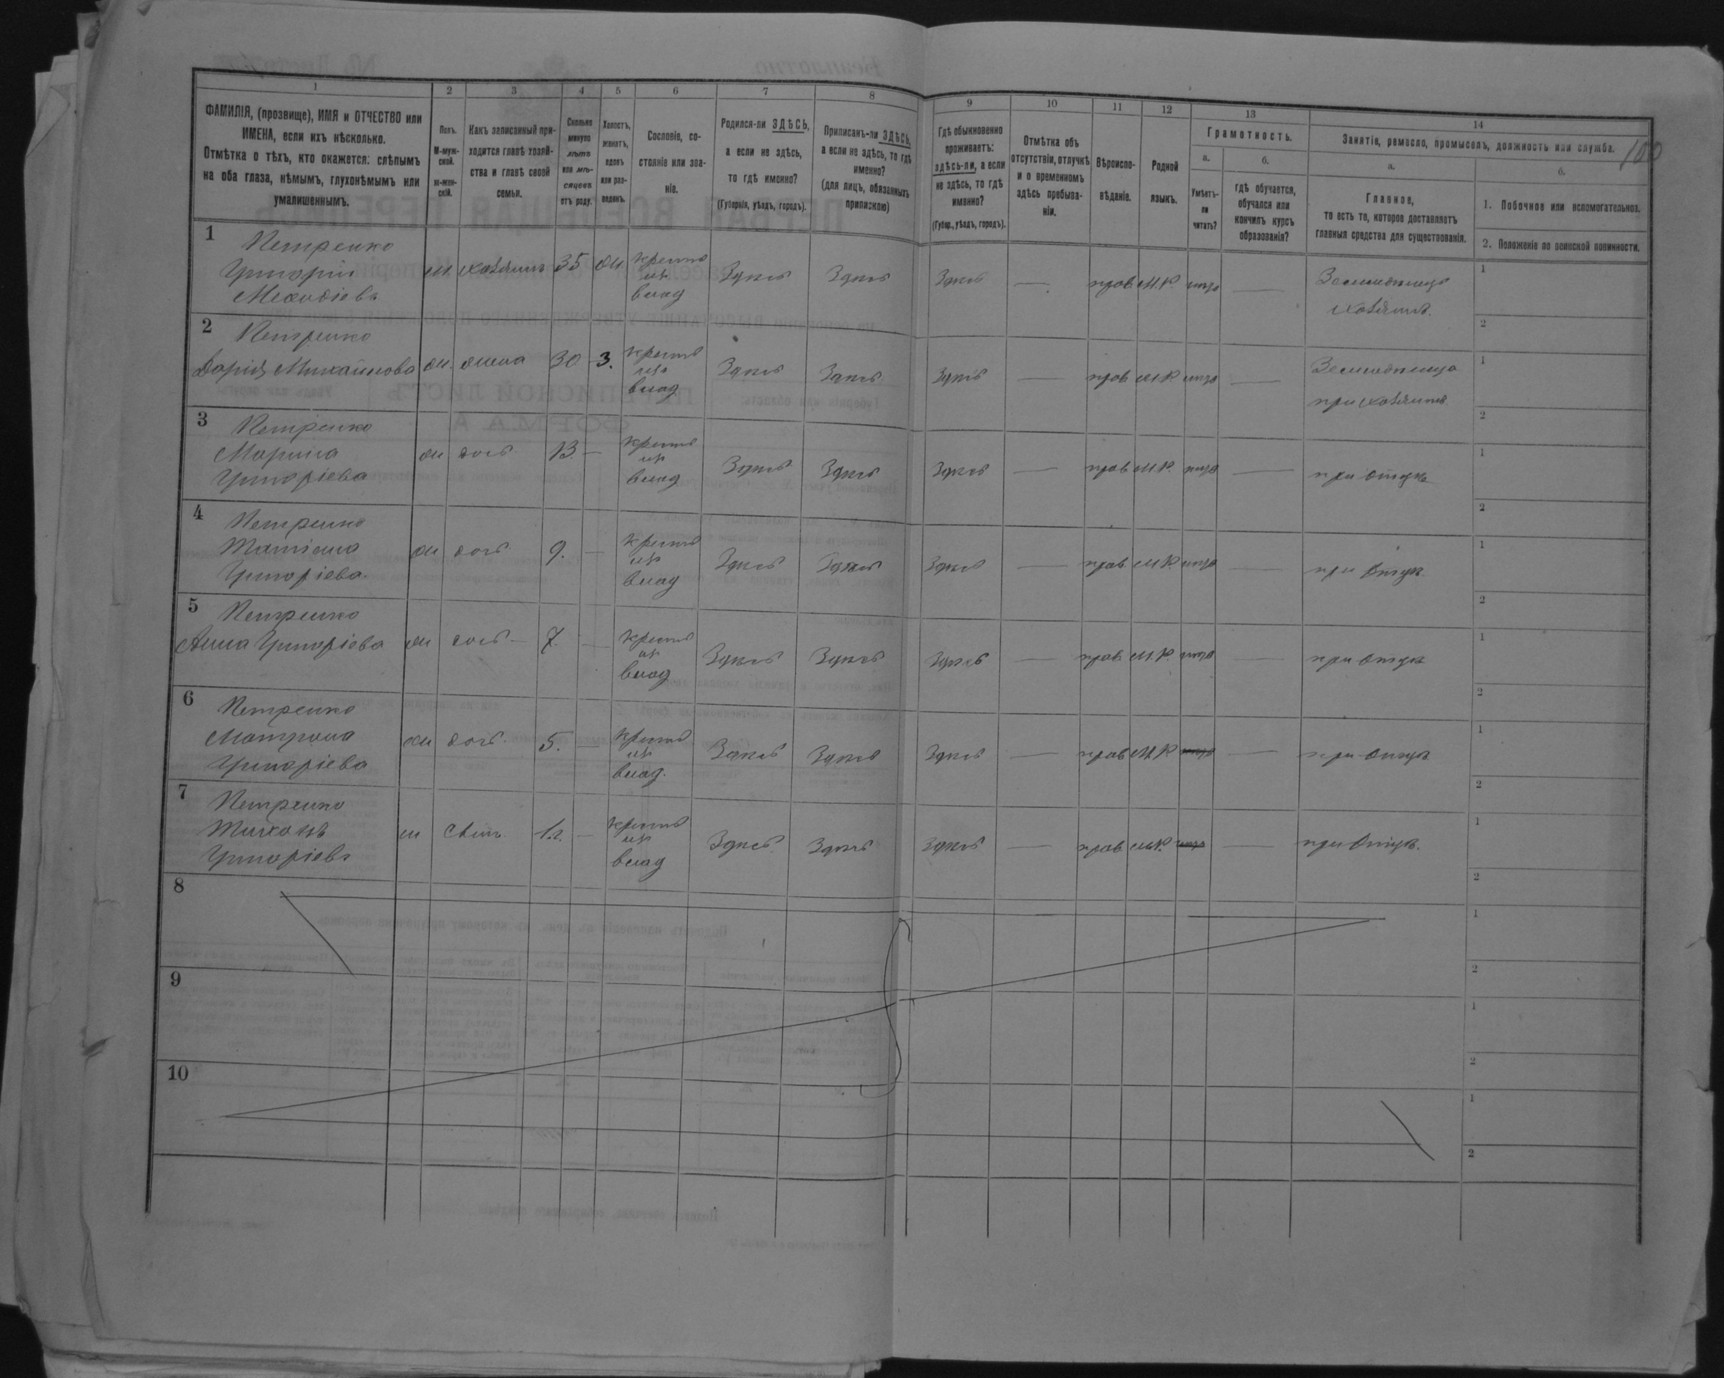 1 2 3 4 5 6 7 8 9 10 11 12 13 14
ФАМИЛІЯ, (прозвище), ИМЯ и ОТЧЕСТВО или
ИМЕНА, если ихъ нѣсколько.
Отмѣтка о тѣхъ, кто окажется: слѣпымъ
на оба глаза, нѣмымъ, глухонѣмымъ или
умалишеннымъ.
Полъ.
М-муж-
ской.
ж-жен-
скій.
Какъ записанный при-
ходится главѣ хозяй-
ства и главѣ своей
семьи.
Сколько
минуло
лѣтъ
или мѣ-
сяцевъ
отъ роду.
Холостъ,
женатъ,
вдовъ
или раз-
веденъ.
Сословіе, со-
стояніе или зва-
ніе.
Родился-ли ЗДѢСЬ,
а если не здѣсь,
то гдѣ именно?
(Губернія, уѣздъ, городъ).
Приписанъ-ли ЗДѢСЬ,
а если не здѣсь, то гдѣ
именно?
(для лицъ, обязанныхъ
припискою)
Гдѣ обыкновенно
проживаетъ:
здѣсь-ли, а если
не здѣсь, то гдѣ
именно?
(Губер., уѣздъ, городъ).
Отмѣтка объ
отсутствіи, отлучкѣ
и о временномъ
здѣсь пребыва-
ніи.
Вѣроиспо-
вѣданіе.
Родной
языкъ.
Грамотность.
а.
Умѣетъ-
ли
читать?
б.
гдѣ обучается,
обучался или
кончилъ курсъ
образованія?
Занятіе, ремесло, промыселъ, должность или служба.
100
а.
Главное,
то есть то, которое доставляетъ
главныя средства для существованія.
б.
1. Побочное или вспомогательное.
2. Положеніе по воинской повинности.
1 Петренко
Григорій
Меѳодіевъ
м. хозяинъ 35 ж крест
из
влад
Здѣсь Здѣсь Здѣсь — прав М.Р. нтъ —
Земледѣлецъ
хозяинъ.
1
2
2 Петренко
Дарія Михайлова ж. жена 30 з. крест
из
влад
Здѣсь Здѣсь Здѣсь — прав М.Р. нтъ —
Земледѣлецъ
при хозяинѣ
1
2
3 Петренко
Марина
Григоріева
ж дочь 13 — крест
из
влад
Здѣсь Здѣсь Здѣсь — прав М.Р. нтъ —
при отцѣ
1
2
4 Петренко
Татіана
Григоріева
ж дочь 9. — крест
из
влад
Здѣсь Здѣсь Здѣсь — прав М.Р. нтъ —
при отцѣ
1
2
5 Петренко
Анна Григоріева ж дочь 7. — крест
из
влад
Здѣсь Здѣсь Здѣсь — прав М.Р. нтъ —
при отцѣ
1
2
6 Петренко
Матрона
Григоріева
ж дочь 5. — крест
из
влад.
Здѣсь Здѣсь Здѣсь — прав М.Р. —
при отцѣ
1
2
7 Петренко
Тихонъ
Григоріевъ
м сынъ 1 г. — крест
из
влад
Здѣсь Здѣсь Здѣсь — прав М.Р. —
при отцѣ.
1
2
8
1
2
9
1
2
10
1
2